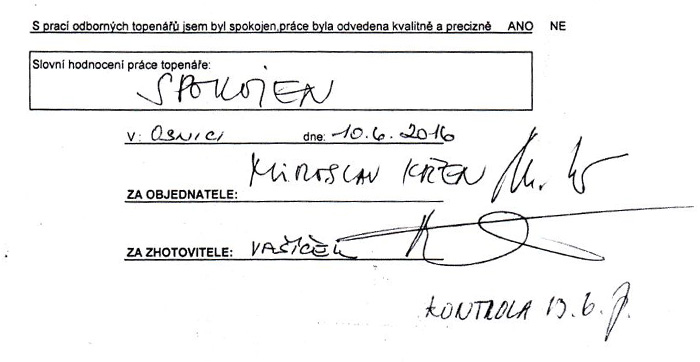 S prací odborných topenářů jsem byl spokojen,práce byla odvedena kvalitně a precizně ANO NE
Slovní hodnocení práce topenáře:
SPOKOJEN
V: OSNICI dne: 10.6.2016
ZA OBJEDNATELE: MIROSLAV KŘEN
ZA ZHOTOVITELE: VAŠÍČEK
KONTROLA 13.6.